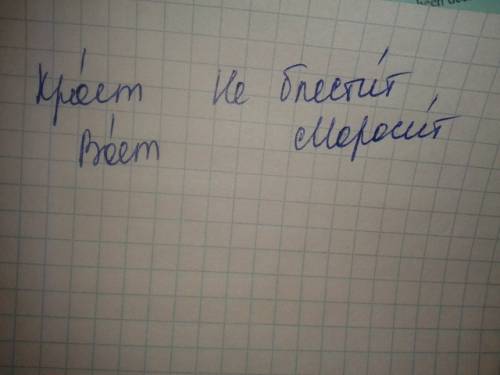 Кро́ет Не блести́т
Во́ет Мороси́т